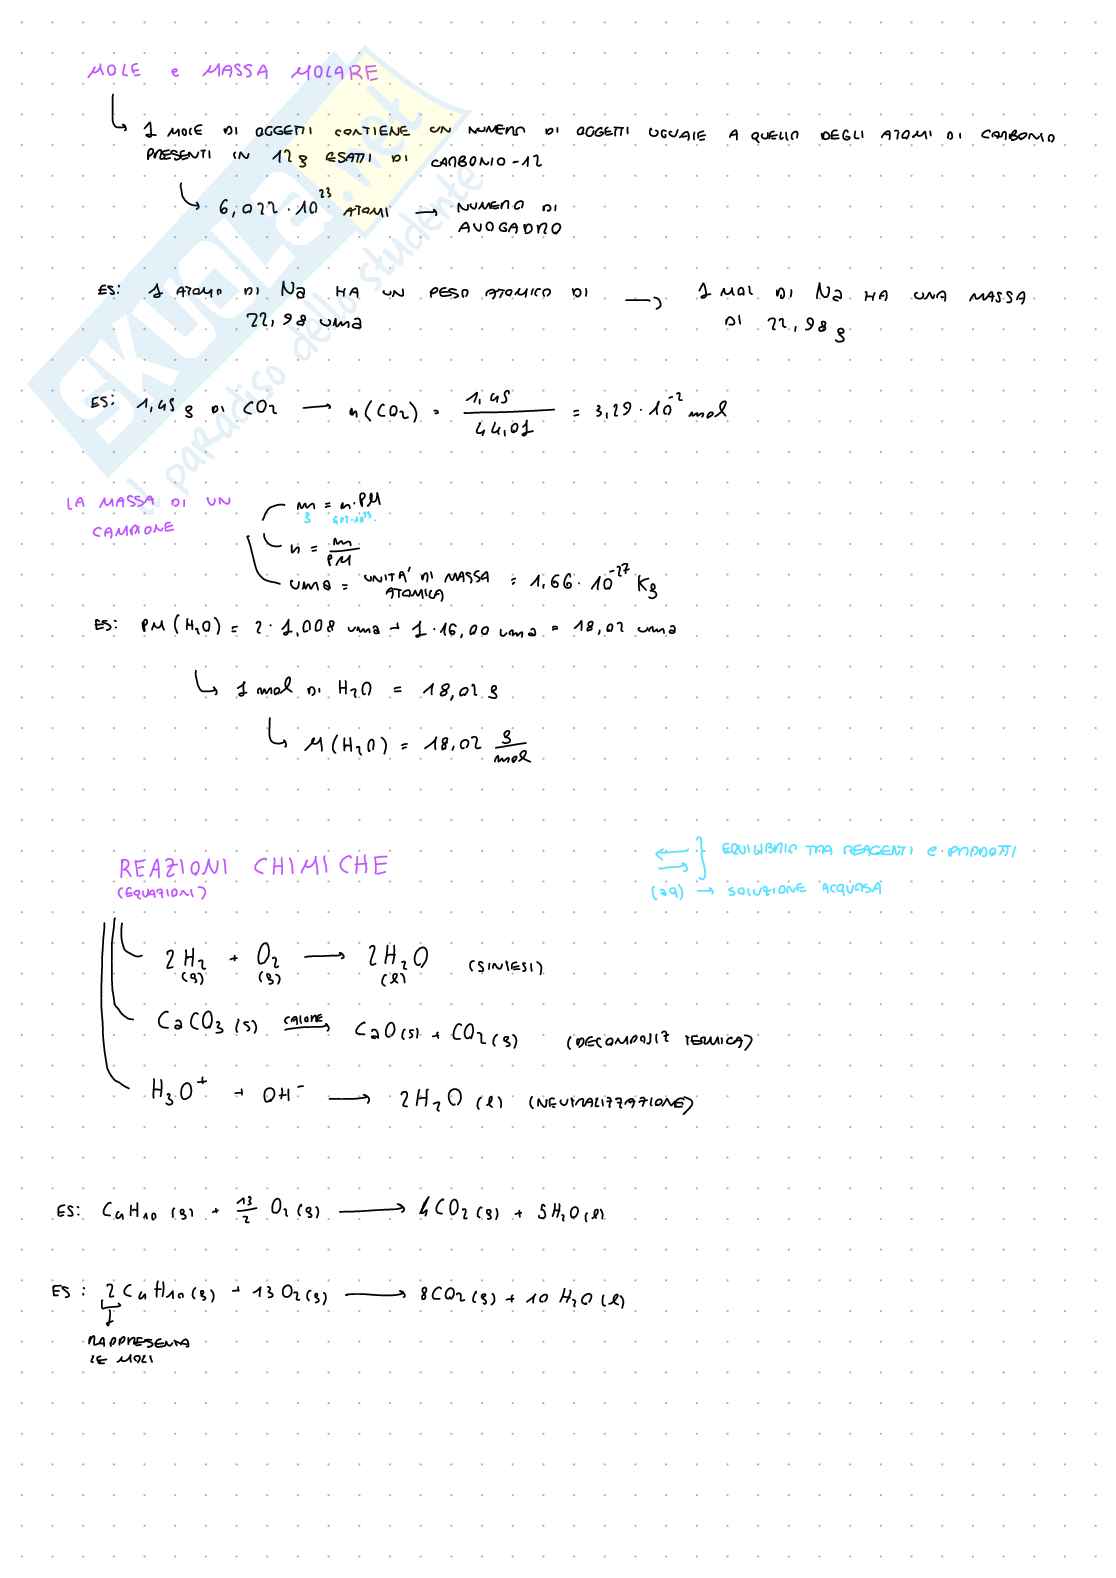 MOLE e MASSA MOLARE
1 MOLE DI OGGETTI CONTIENE UN NUMERO DI OGGETTI UGUALE A QUELLO DEGLI ATOMI DI CARBONIO
PRESENTI IN 12 g ESATTI DI CARBONIO-12
6,022 · 10²³ ATOMI → NUMERO DI
AVOGADRO
ES: 1 ATOMO DI Na HA UN PESO ATOMICO DI → 1 MOL DI Na HA UNA MASSA
22,98 uma DI 22,98 g
ES: 1,45 g DI CO₂ → n(CO₂) = 1,45 / 44,01 = 3,29 · 10⁻² mol
LA MASSA DI UN
CAMPIONE
m = n·PM
g
n = m / PM
uma = UNITA' DI MASSA ATOMICA = 1,66 · 10⁻²⁷ Kg
ES: PM (H₂O) = 2 · 1,008 uma + 1 · 16,00 uma = 18,02 uma
1 mol DI H₂O = 18,02 g
M (H₂O) = 18,02 g / mol
REAZIONI CHIMICHE
(EQUAZIONI)
⇄ } EQUILIBRIO TRA REAGENTI e PRODOTTI
(aq) → SOLUZIONE ACQUOSA
2H₂ (g) + O₂ (g) → 2H₂O (l) (SINTESI)
CaCO₃ (s) CALORE → CaO(s) + CO₂ (g) (DECOMPOSIZ TERMICA)
H₃O⁺ + OH⁻ → 2H₂O (l) (NEUTRALIZZAZIONE)
ES: C₄H₁₀ (g) + 13/2 O₂ (g) → 4CO₂ (g) + 5H₂O (l)
ES: 2C₄H₁₀ (g) + 13O₂ (g) → 8CO₂ (g) + 10 H₂O (l)
RAPPRESENTA
LE MOLI
SKUOLA.net
il paradiso dello studente